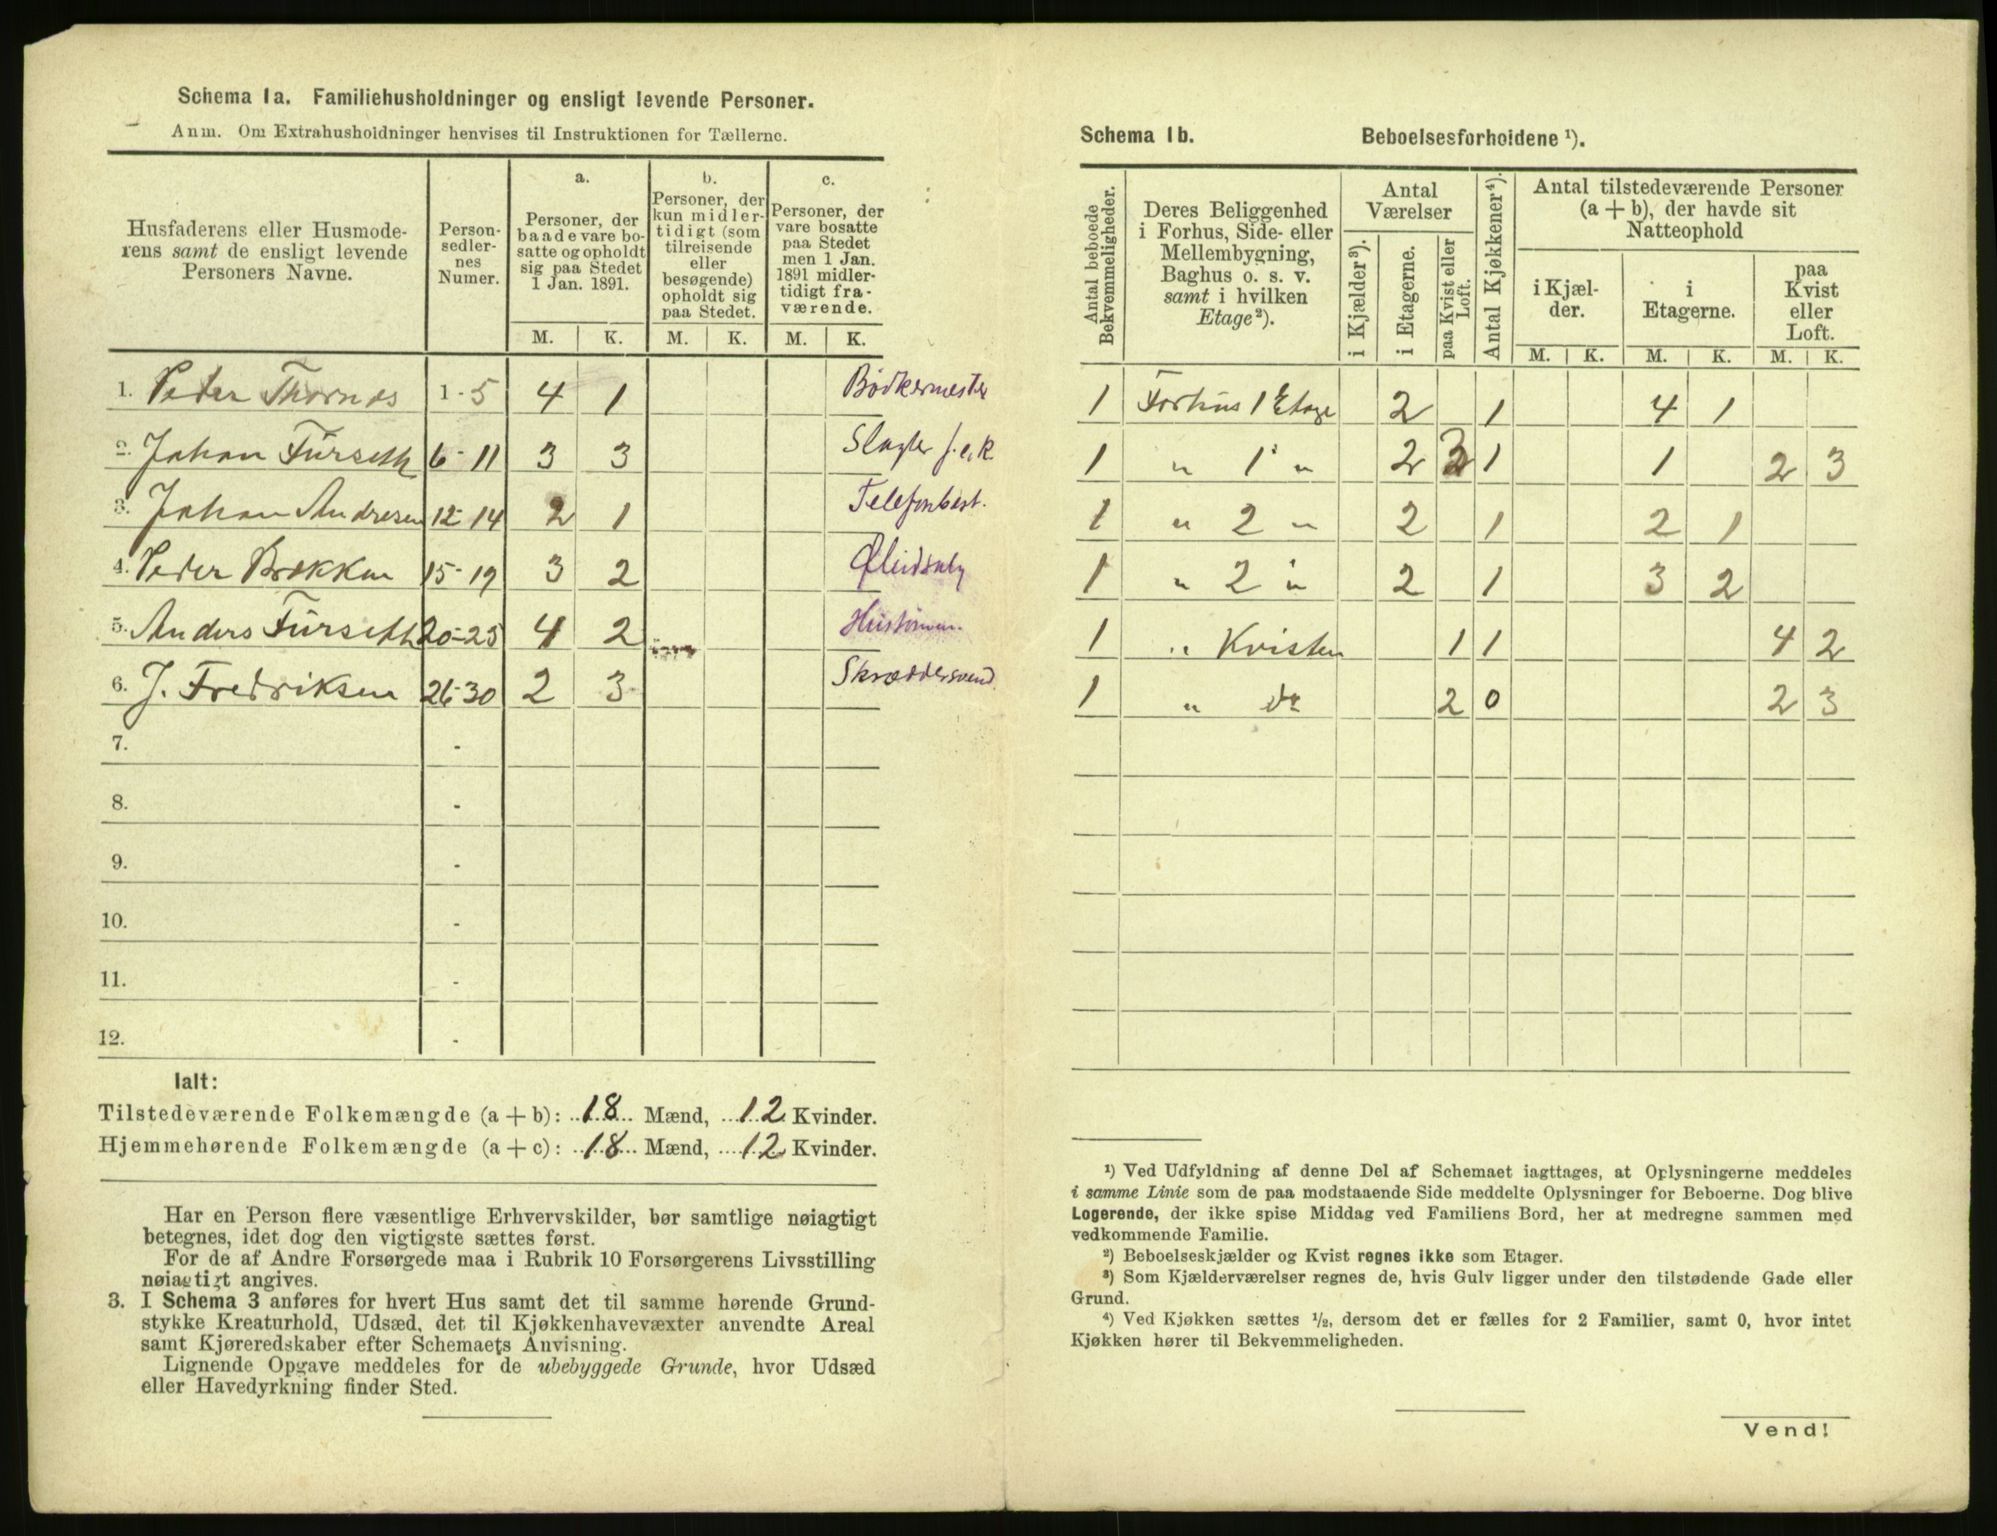 Schema 1a. Familiehusholdninger og ensligt levende Personer.
Anm. Om Extrahusholdninger henvises til Instruktionen for Tællerne.
Husfaderens eller Husmode-
rens samt de ensligt levende
Personers Navne.
Person-
sedler-
nes
Numer.
a.
Personer, der
baade vare bo-
satte og opholdt
sig paa Stedet
1 Jan. 1891.
b.
Personer, der
kun midler-
tidigt (som
tilreisende
eller
besøgende)
opholdt sig
paa Stedet.
c.
Personer, der
vare bosatte
paa Stedet
men 1 Jan.
1891 midler-
tidigt fra-
værende.
M. K. M. K. M. K.
1. Peder Thornæs 1-5 4 1 Bødkermester
2. Johan Fürseth 6-11 3 3 Slagter f.e.R.
3. Johan Andresen 12-14 2 1 Telefonbest.
4. Peder Brekken 15-19 3 2
5. Anders Fürseth 20-25 4 2
6. J. Fredriksen 26-30 2 3 Skræddersvend
7. -
8. -
9. -
10. -
11. -
12. -
Ialt:
Tilstedeværende Folkemængde (a + b): 18 Mænd, 12 Kvinder.
Hjemmehørende Folkemængde (a + c): 18 Mænd, 12 Kvinder.
Har en Person flere væsentlige Erhvervskilder, bør samtlige nøiagtigt
betegnes, idet dog den vigtigste sættes først.
For de af Andre Forsørgede maa i Rubrik 10 Forsørgerens Livsstilling
nøiagtigt angives.
3. I Schema 3 anføres for hvert Hus samt det til samme hørende Grund-
stykke Kreaturhold, Udsæd, det til Kjøkkenhavevæxter anvendte Areal
samt Kjøreredskaber efter Schemaets Anvisning.
Lignende Opgave meddeles for de ubebyggede Grunde, hvor Udsæd
eller Havedyrkning finder Sted.
Schema 1b. Beboelsesforholdene ¹).
Antal beboede
Bekvemmeligheder.
Deres Beliggenhed
i Forhus, Side- eller
Mellembygning,
Baghus o. s. v.
samt i hvilken
Etage²).
Antal
Værelser
i Kjælder³).
i Etagerne.
paa Kvist eller
Loft.
Antal Kjøkkener⁴).
Antal tilstedeværende Personer
(a + b), der havde sit
Natteophold
i Kjæl-
der.
i
Etagerne.
paa
Kvist
eller
Loft.
M. K. M. K. M. K.
1 Forhus 1 Etage 2 1 4 1
1 " 1 " 2 2 1 1 2 3
1 " 2 " 2 1 2 1
1 " 2 " 2 1 3 2
1 " Kvisten 1 1 4 2
1 " do 2 0 2 3
¹) Ved Udfyldning af denne Del af Schemaet iagttages, at Oplysningerne meddeles
i samme Linie som de paa modstaaende Side meddelte Oplysninger for Beboerne. Dog blive
Logerende, der ikke spise Middag ved Familiens Bord, her at medregne sammen med
vedkommende Familie.
²) Beboelseskjælder og Kvist regnes ikke som Etager.
³) Som Kjælderværelser regnes de, hvis Gulv ligger under den tilstødende Gade eller
Grund.
⁴) Ved Kjøkken sættes ½, dersom det er fælles for 2 Familier, samt 0, hvor intet
Kjøkken hører til Bekvemmeligheden.
Vend!